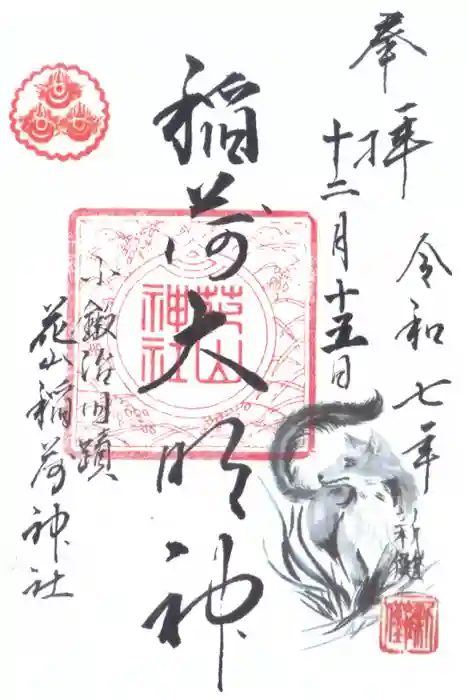 奉拝
令和七年
十二月十五日
稲荷大明神
花山
神社
小鍛冶旧蹟
花山稲荷神社